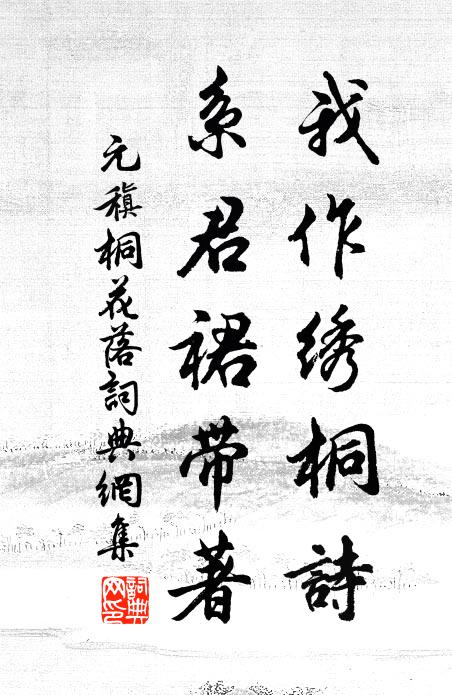 我作绣桐詩
系君裙带著
元稹桐花落詞典網集
詞典
网印